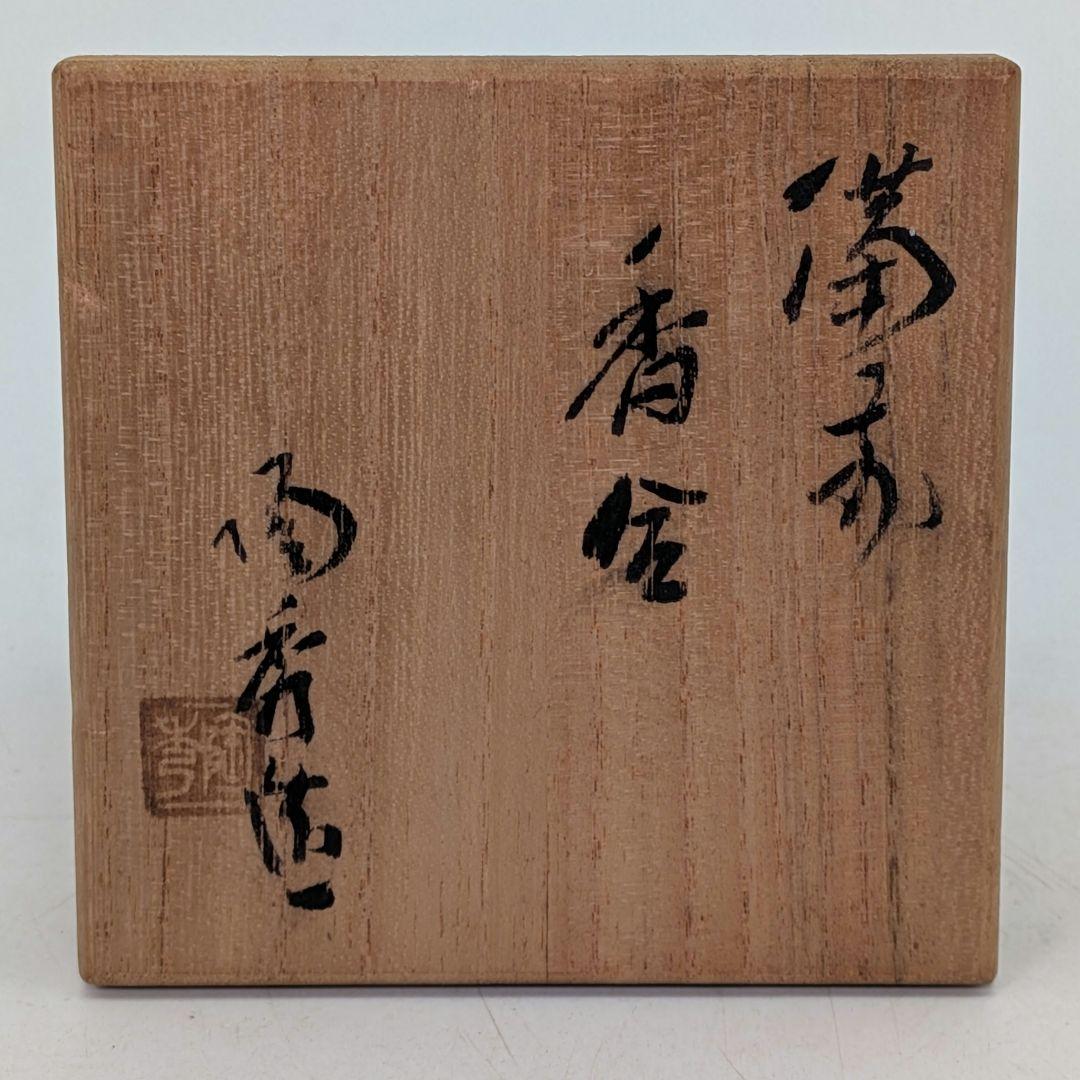 備前
香合
陶秀造